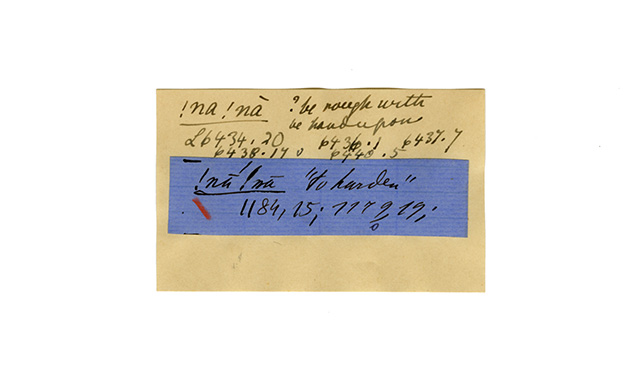 !na !nà ? be rough with
be hard upon
L6434.20 6436.1 6437.7
6438.17 0 6440.5
!nã !nã "to harden"
1184, 15; 1179, 19;